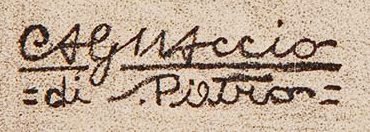 CAGNACCIO
=di San Pietro=